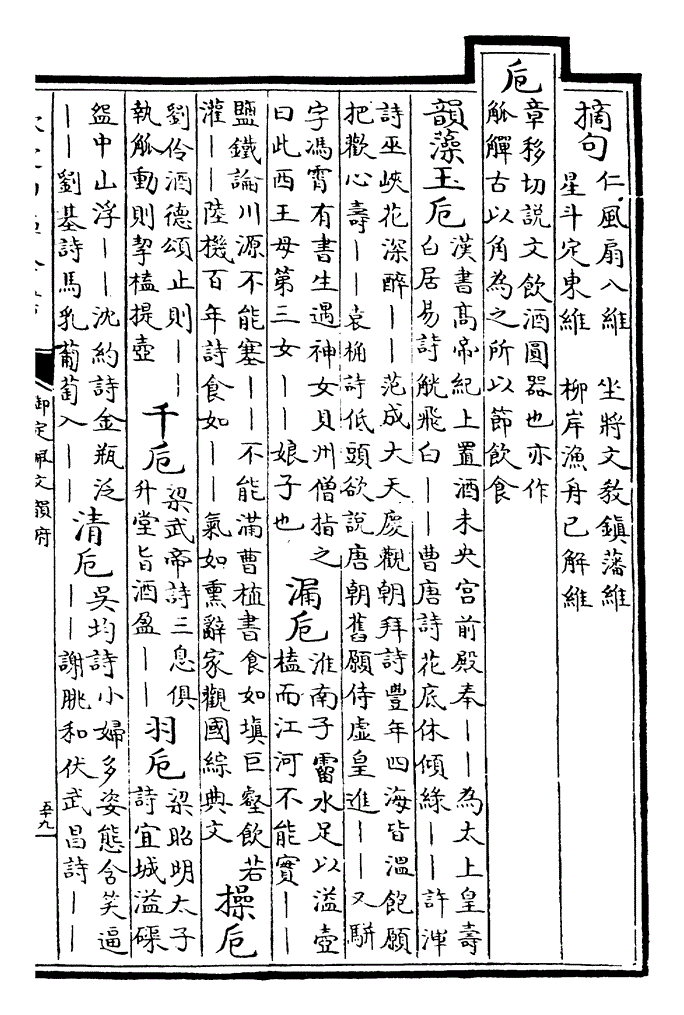 摘句 仁風扇八維 坐將文教鎮藩維
星斗定東維 柳岸漁舟已解維
卮 章移切説文飲酒圓器也亦作
觚觶古以角為之所以節飲食
韻藻玉卮 漢書髙帝紀上置酒未央宫前殿奉——為太上皇壽
白居易詩觥飛白——曹唐詩花底休傾綠——許渾
詩巫峽花深醉——范成大天慶觀朝拜詩豐年四海皆溫飽願
把歡心壽——袁桷詩低頭欲説唐朝舊願侍虚皇進——又駢
字馮霄有書生遇神女貝州僧指之
曰此西王母第三女——娘子也
漏卮 淮南子霤水足以溢壺
榼而江河不能實——
鹽鐵論川源不能塞——不能滿曹植書食如塡巨壑飲若
灌——陸機百年詩食如——氣如熏辭家觀國綜典文
操卮
劉伶酒德頌止則——
執觚動則挈榼提壺
千卮 梁武帝詩三息俱
升堂旨酒盈——
羽卮 梁昭明太子
詩宜城溢磲
盌中山浮——沈約詩金瓶泛
——劉基詩馬乳葡萄入——
清卮 吳均詩小婦多姿態含笑逼
——謝朓和伏武昌詩——
御定佩文韻府
五十九